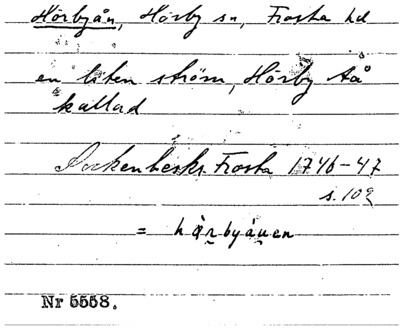 Hörbyån, Hörby sn, Frosta hd
en liten ström, Hörby åå
kallad
Sockenbeskr. Frosta 1746-47
s. 102
= hàrbyáuen
Nr 5558.